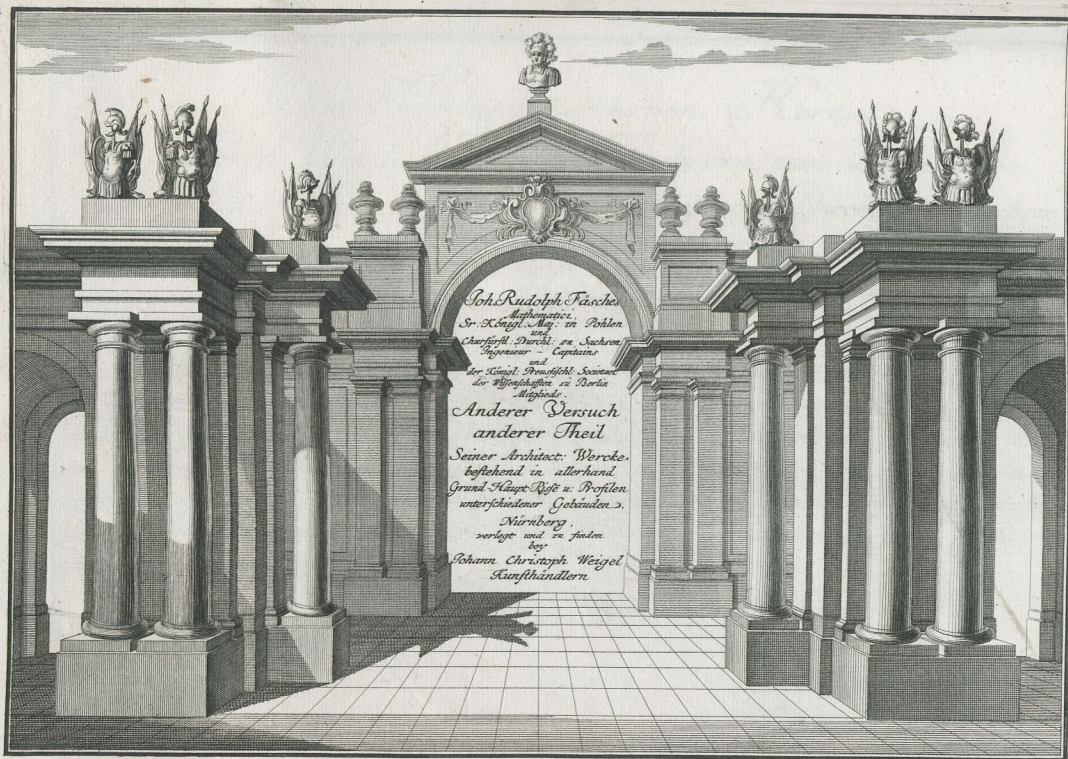 Joh. Rudolph Fäsches
Mathematici
Sr. Königl. Maj: in Pohlen
und
Churfürstl: Durchl: zu Sachsen
Ingenieur - Capitains
und
der Königl: Preusischl: Societaet
der Wissenschafften zu Berlin
Mitglieds.
Anderer Versuch
anderer Theil
Seiner Architect: Wercke
bestehend in allerhand
Grund-Haupt-Risse u: Profilen
unterschiedener Gebäuden.
Nürnberg,
verlegt und zu finden
bey
Johann Christoph Weigel
Kunsthändlern